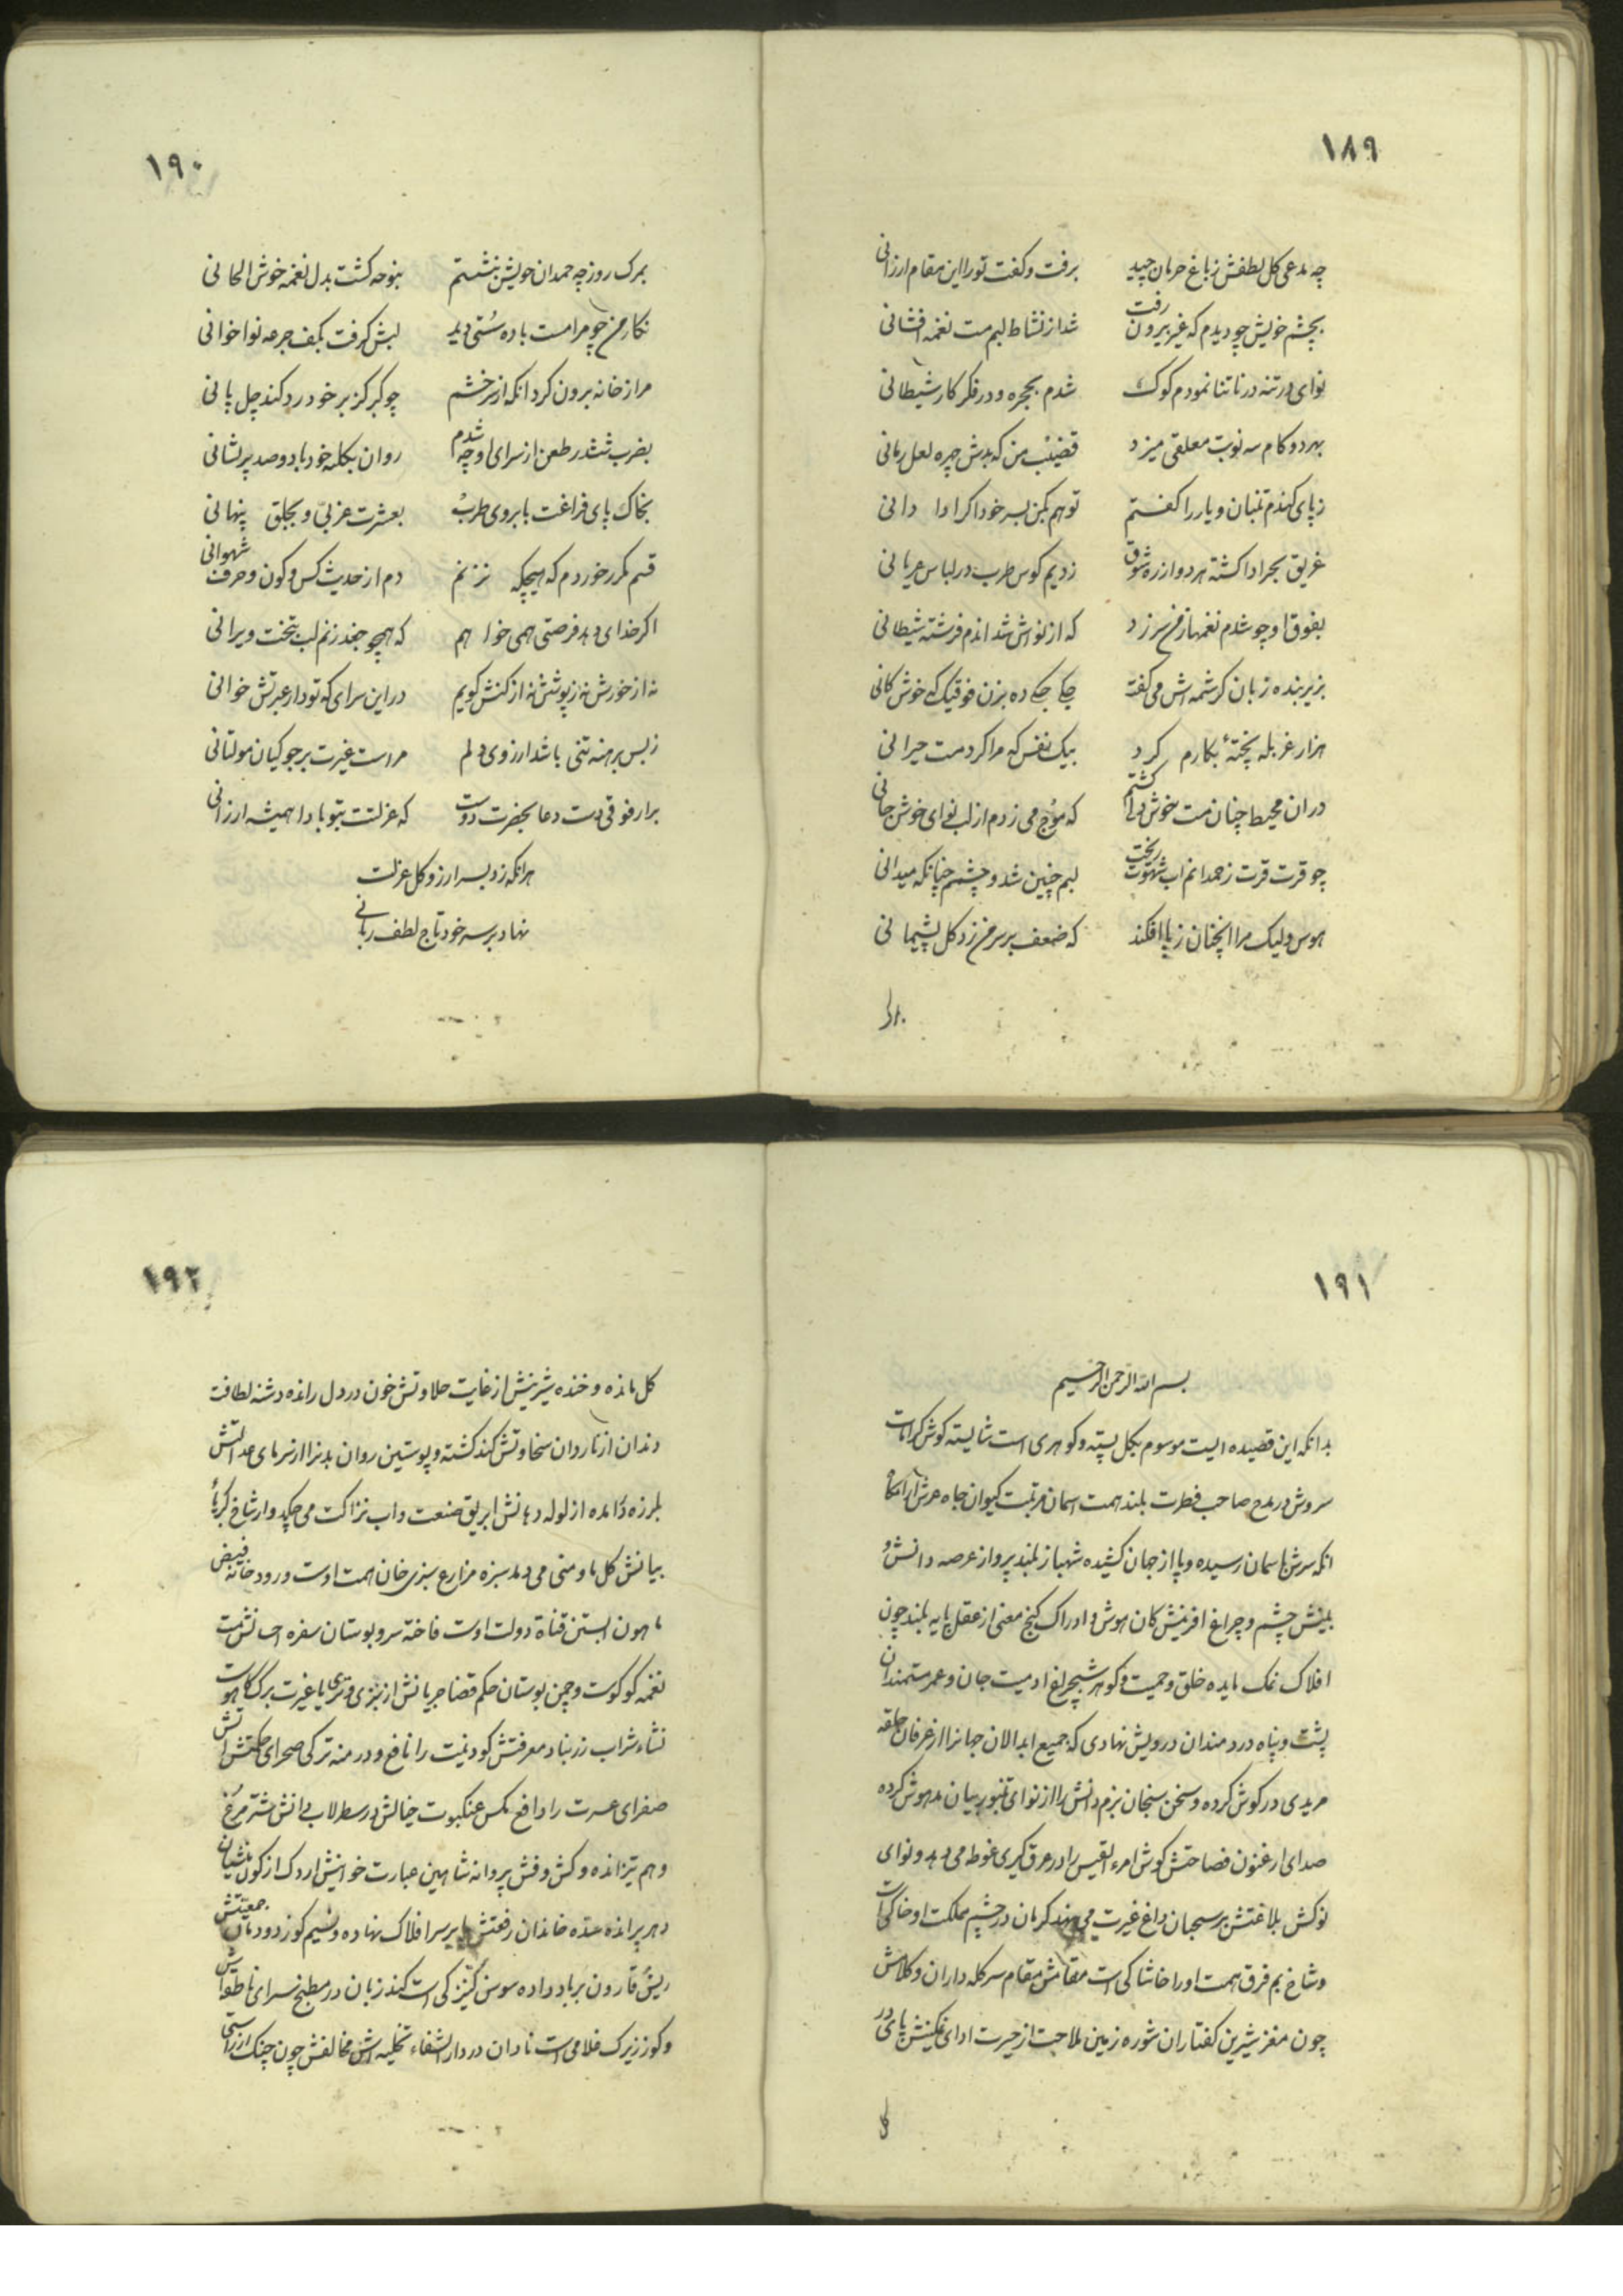 ۱۸۹
چه مدعی کل لطفش ز باغ حرمان چید برفت و کفت تو را این مقام ارزانی
بچشم خویش چو دیدم که غیر بیرون رفت شد از نشاط لبم مست نغمه افشانی
نوای درتنه درنا تنا نمودم کوک شدم بحجره و در فکر کار شیطانی
بهر دو کام سه نوبت معلقی میزد قضیب من که بدش چهره لعل رمانی
ز پای کندم تنبان و یار را کفتم تو هم بکن بسر خود اکر ادا دانی
غریق بحر ادا کشته هر دو از ره شوق زدیم کوس طرب در لباس عریانی
بفوق او چو شدم نغمها ز من سر زد که از نواش شد اندم فرشته شیطانی
بزیر بنده زبان کرشمه اش می کفت جکی جکی ده بزن فوقیک خوش کانی
هزار غربله پخته بکارم کرد بیک نفس که مرا کرد مست حیرانی
در ان محیط چنان مست خوش دلی کشتم که موج می زدم از لب نوای خوش جانی
چو قرت قرت ز حمدانم اب شهوت ریخت لبم چنین شد و چشمم چنانکه میدانی
هوس ولیک مرا انچنان ز پا افکند که ضعف بر سر من زد کل پشیمانی
۱۹۰
بمرک روز چه حمدان خویش بنشستم بنوحه کشت بدل نغمه خوش الحانی
نکار من چو مرا مست باده سستی دید لبش کرفت بکف جرعه نوا خوانی
مرا ز خانه برون کرد انکه از سر خشم چو کیر کز بر خود رد کند چل پانی
بضرب ششدر طعن از سرای او چه شدم روان بکلبه خود با دو صد پریشانی
بخاک پای فراغت بابروی طرب بعشرت عزبی و بجلق پنهانی
قسم مکرر خوردم که هیچکه نزنم دم از حدیث کس و کون و حرف شهوانی
اکر خدای دهد فرصتی همی خواهم که همچو جغد زنم لب بتخت ویرانی
نه از خورش نه ز پوشش نه از کنش کویم در این سرای که تو دار عبرتش خوانی
ز بس برهنه تنی باشد ارزوی دلم مراست غیرت بر جوکیان مولتانی
برار فوقی دست دعا بحضرت دوست که عزلتت بتو بادا همیشه ارزانی
هرانکه زد بسر ارزو کل عزلت
نهاد بر سر خود تاج لطف ربانی
۱۹۱
بسم الله الرحمن الرحیم
بدانکه این قصیده ایست موسوم بکل پسته و کوهری است شایسته کوش کرامات
سروش در مدح صاحب فطرت بلند همت اسمان مرتبت کیوان جاه عرش ارامکاه
انکه سرش باسمان رسیده و پا از جهان کشیده شهباز بلند پرواز عرصه دانش و
بینش چشم و چراغ افرینش کان هوش و ادراک کنج معنی از عقل پایه بلند چون
افلاک نمک مایده خلق و حمیت و کوهر شبچراغ ادمیت جان و عمر مستمندان
پشت و پناه دردمندان درویش نهادی که جمیع ابدالان جهانرا از عرفان حلقه
مریدی در کوش کرده و سخن سنجان بزم دانش را از نوای تنبور بیان مدهوش کرده
صدای ارغنون فصاحتش کوش امرء القیس را در عرق کیری غوطه می دهد و نوای
نوکش بلاغتش بر سحبان داغ غیرت می نهد کرمان در چشم مملکت او خاکی است
و شاخ بم فرق همت او را خاشاکی است مقامش مقام سرکله داران و کلامش
چون مغز شیرین کفتاران شوره زمین ملاحت از حیرت ادای نمکینش پای در
کل
۱۹۲
کل مانده و خنده شیرینش از غایت حلاوتش خون در دل رانده دشنه لطافت
دندان از ناروان سخاوتش کند کشته و پوستین روان بدنرا از سرمای عدالتش
بلرزه در امده از لوله دهانش ابریق صنعت و اب نزاکت می چکد و از شاخ کربه
بیانش کل ما و منی می دمد سبزه مزارع سبزی خان همت اوست و رودخانه فیض
هامون ابستن قناة دولت اوست فاخته سرو بوستان سفره احسانش مست
نغمه کوکوست و چمن بوستان حکم قضا جریانش از سبزی و تری با غیرت برک کاهوست
نشاء شراب رزبناد معرفتش کودنیت را نافع و درمنه ترکی صحرای حکمتش
صفرای عسرت را دافع مکس عنکبوت خیالش در سطرلاب دانش شتر مرغ
وهم تیزانده و کش و فش پروانه شاهین عبارت خوانیش اردک از کون
دهر پرانده سده خاندان رفعتش پا بر سر افلاک نهاده و نسیم کوز دودمان جمعیتش
ریش قارون بر باد داده سوسن کنیزکی است کند زبان در مطبخ سرای ناطقه اش
و کوز زیرک غلامی است نادان در دار الشفاء تخلیه اش مخالفش چون چنک از راستی